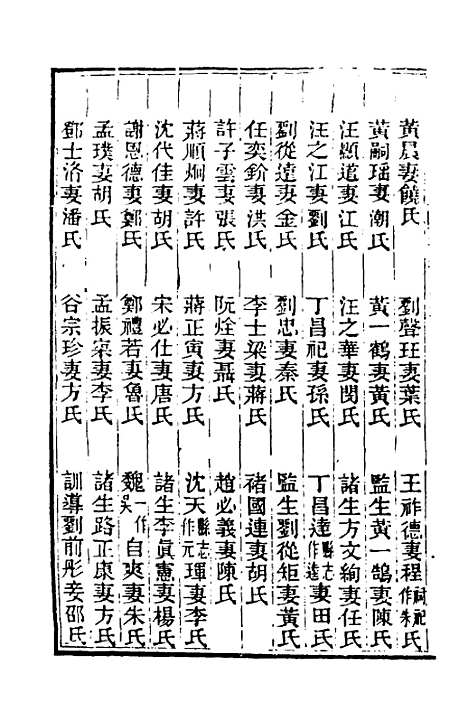 黃晨妻饒氏　劉聲玨妻葉氏　王祚德妻程祠祀作朱氏
黃嗣瑶妻潮氏　黃一鶴妻黃氏　監生黃一鵠妻陳氏
汪顯遠妻江氏　汪之華妻閔氏　諸生方文絢妻任氏
汪之江妻劉氏　丁昌祀妻孫氏　丁昌達縣志作逵妻田氏
劉從遠妻金氏　劉忠妻秦氏　監生劉從矩妻黃氏
任奕鈖妻洪氏　李士梁妻蔣氏　褚國連妻胡氏
許子雲妻張氏　阮烇妻聶氏　趙必義妻陳氏
蔣順烱妻許氏　蔣正寅妻方氏　沈天縣志作元琿妻李氏
沈代佳妻胡氏　宋必仕妻唐氏　諸生李眞憲妻楊氏
謝恩德妻鄭氏　鄭禮若妻魯氏　魏一作吴自爽妻朱氏
孟璞妻胡氏　孟振宗妻李氏　諸生路正康妻方氏
鄧士洛妻潘氏　谷宗珍妻方氏　訓導劉前彤妾邵氏